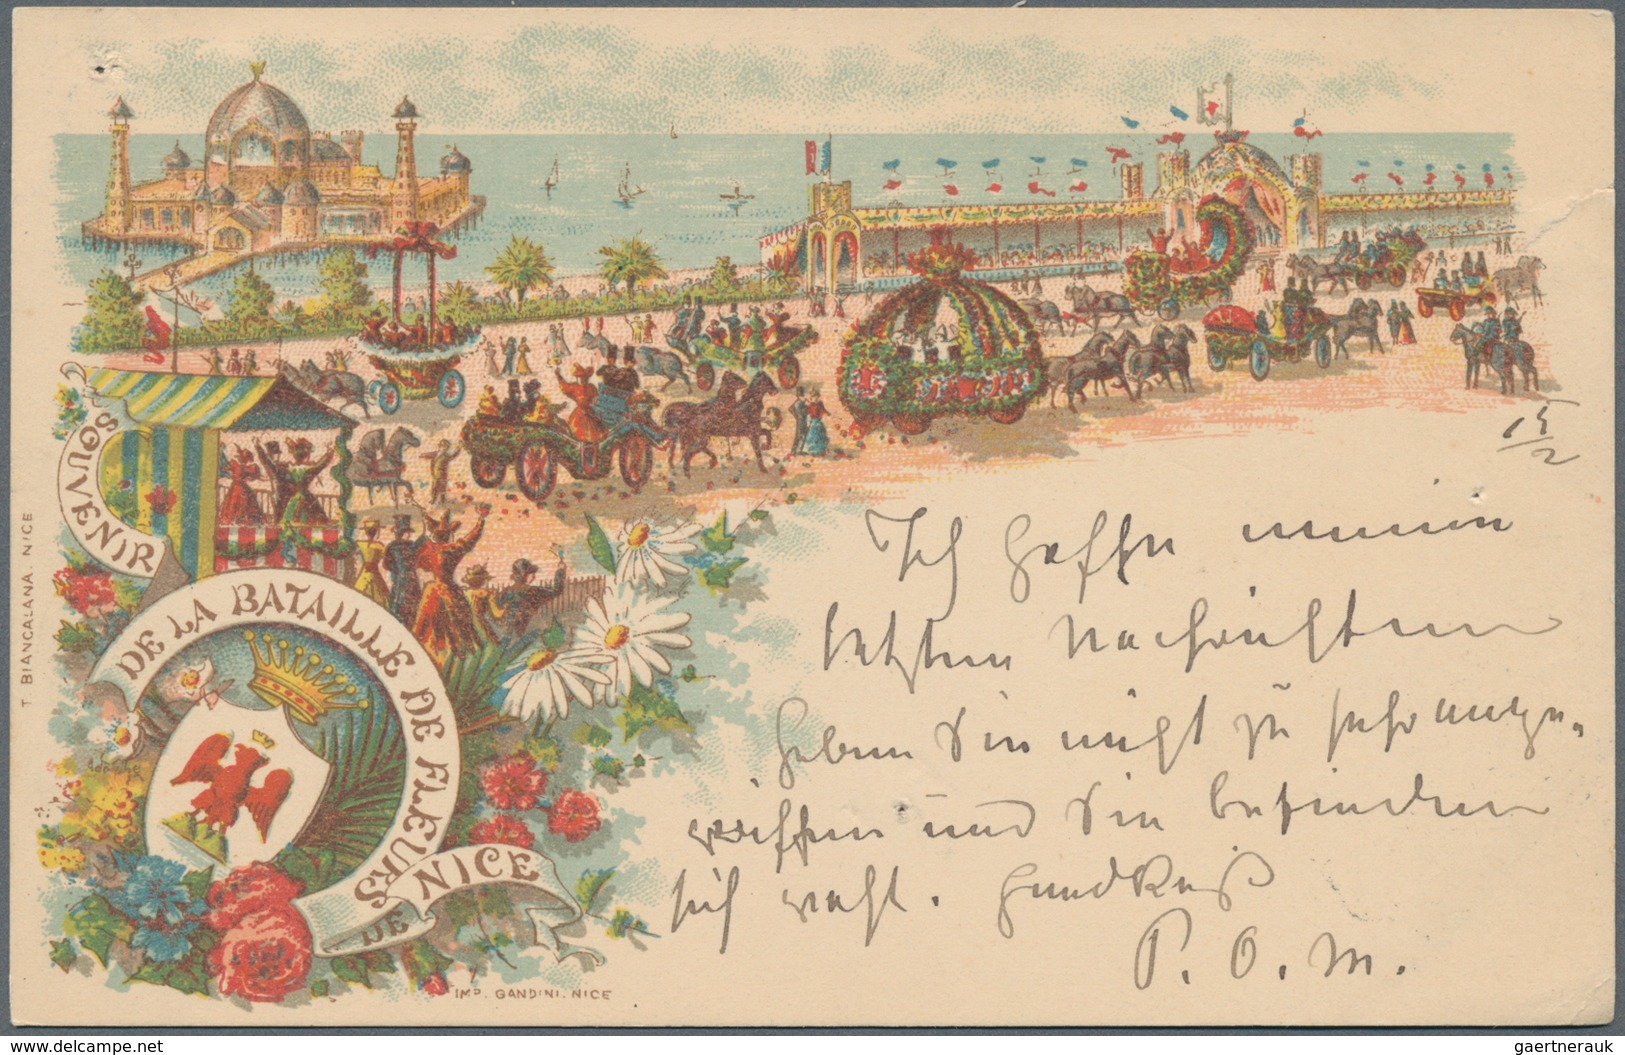 SOUVENIR
DE LA BATAILLE DE FLEURS
DE NICE
T. BIANCALANA. NICE
IMP. GANDINI. NICE
15/2
Ich hoffe meine
letzten Nachrichten
haben Sie nicht zu sehr
und Sie befinden
sich wohl. Handkuß
P. O. M.
www.delcampe.net
gaertnerauk